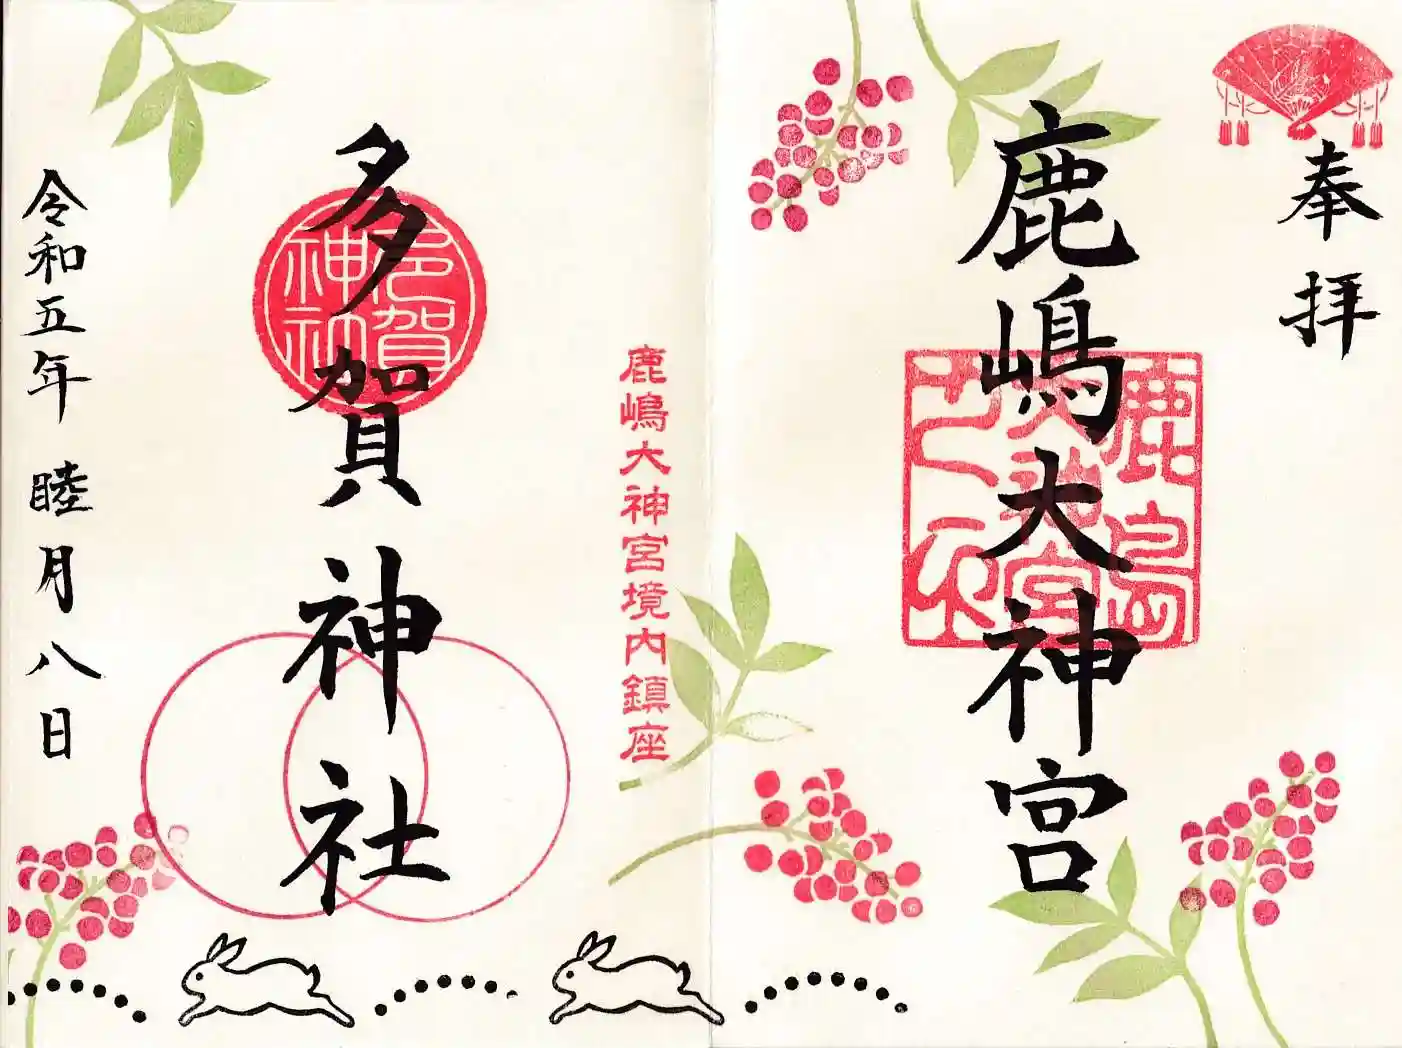 奉拝
鹿嶋大神宮
鹿島
神宮
鹿嶋大神宮境内鎮座
多賀神社
多賀
神社
令和五年 睦月八日